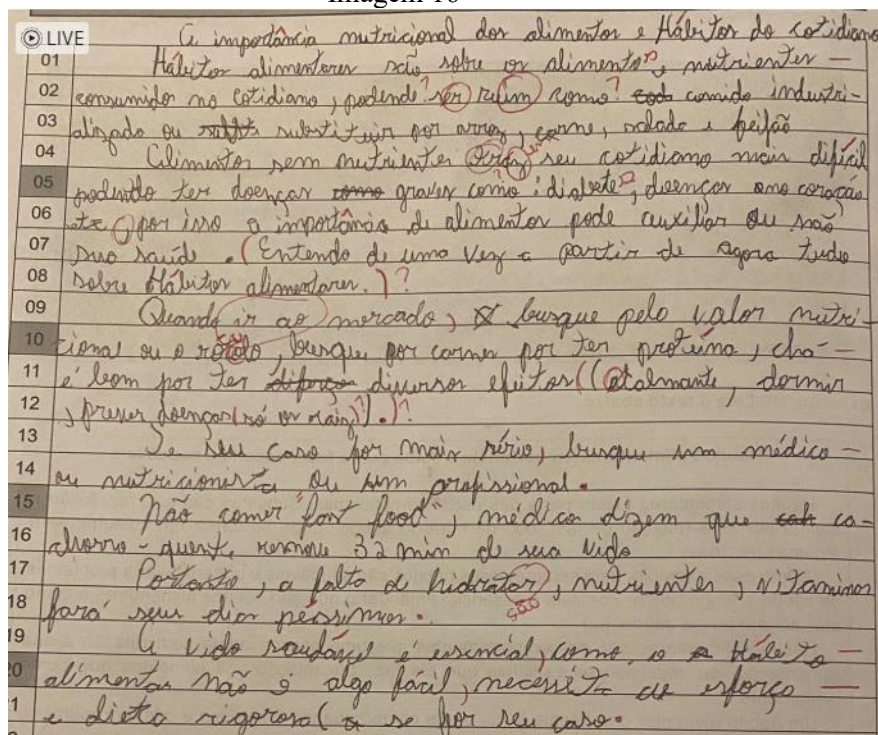 Imagem 10
LIVE
A importância nutricional dos alimentos e Hábitos do cotidiano
01 Hábitos alimentares são sobre os alimentos, nutrientes
02 consumidos no cotidiano, podendo ser ruim como comida industri-
03 alizada ou substituir por arroz, carne, salada e feijão
04 Alimentos sem nutrientes trás seu cotidiano mais difícil
05 podendo ter doenças como graves como: diabete, doenças no coração
06 etc, por isso a importância de alimentos pode auxiliar ou não
07 sua saúde. (Entenda de uma vez a partir de agora tudo
08 sobre Hábitos alimentares.)?
09 Quando ir ao mercado, busque pelo valor nutri-
10 cional ou o rotolo, busque por carnes por ter proteína, chá
11 é bom por ter diversos efeitos (
12 , prever doenças (só os mais)?).)?
13 Se seu caso for mais sério, busque um médico
14 ou nutricionista ou um profissional.
15 Não comer "fast food", médico dizem que ca-
16 chorro-quente remove 32 min de sua vida
17 Portanto, a falta de hidratos, nutrientes, vitaminas
18 fará seus dias péssimos.
19 A vida saudável é essencial, como o Hábito
20 alimentar não é algo fácil, necessita de esforço
1 e dieta rigorosa ( se for seu caso.